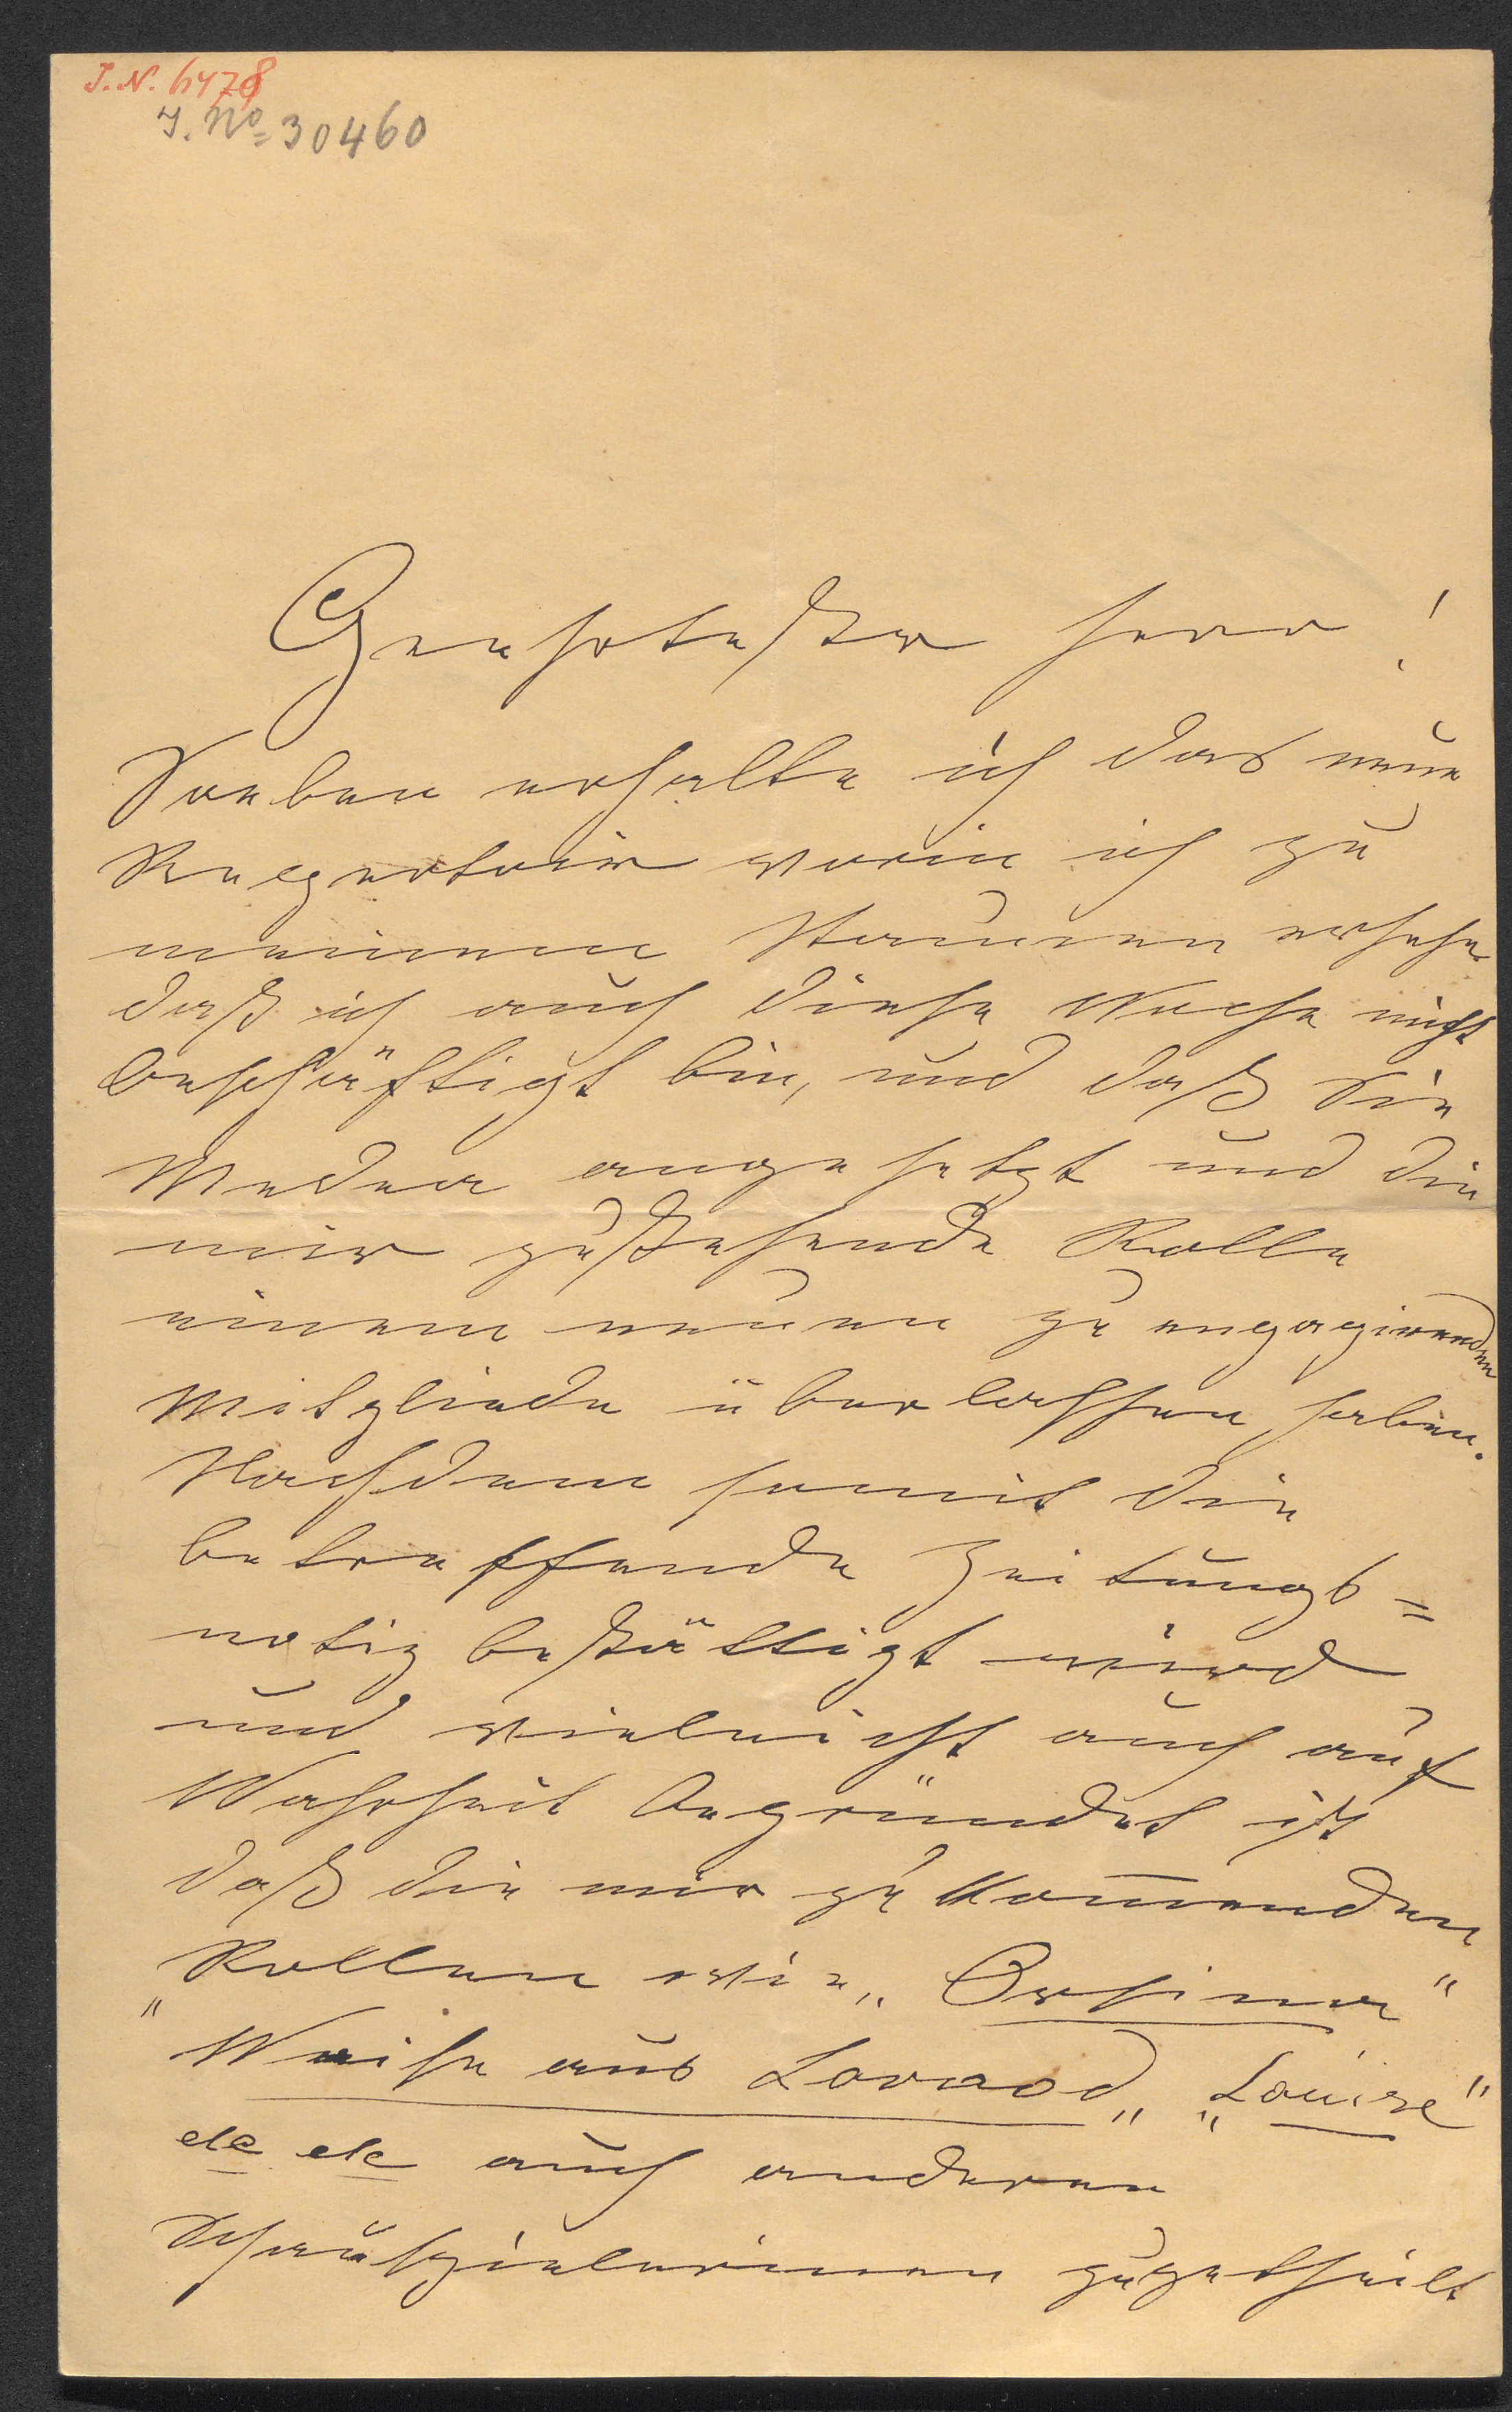 J. N. 6478
J. No 30460
Geehrtester Herr!
Soeben erhalte ich das neue
Repertoir worin ich zu
meinem Staunen ersehe
daß ich auch diese Woche nicht
beschäftigt bin, und daß Sie
Medea angesetzt und die
mir zustehende Rolle
einem neuen zu engagirenden
Mitgliede überlassen haben.
Nachdem somit die
betreffende Zeitungs=
notiz bestättigt wird
und vieleicht auch auf
Wahrheit begründet ist
daß die mir zu kom̄enden
Rollen wie „Orsina"
„Waise aus Lowood„ „Louise"
etc etc auch anderen
Schauspielerinen zugetheilt